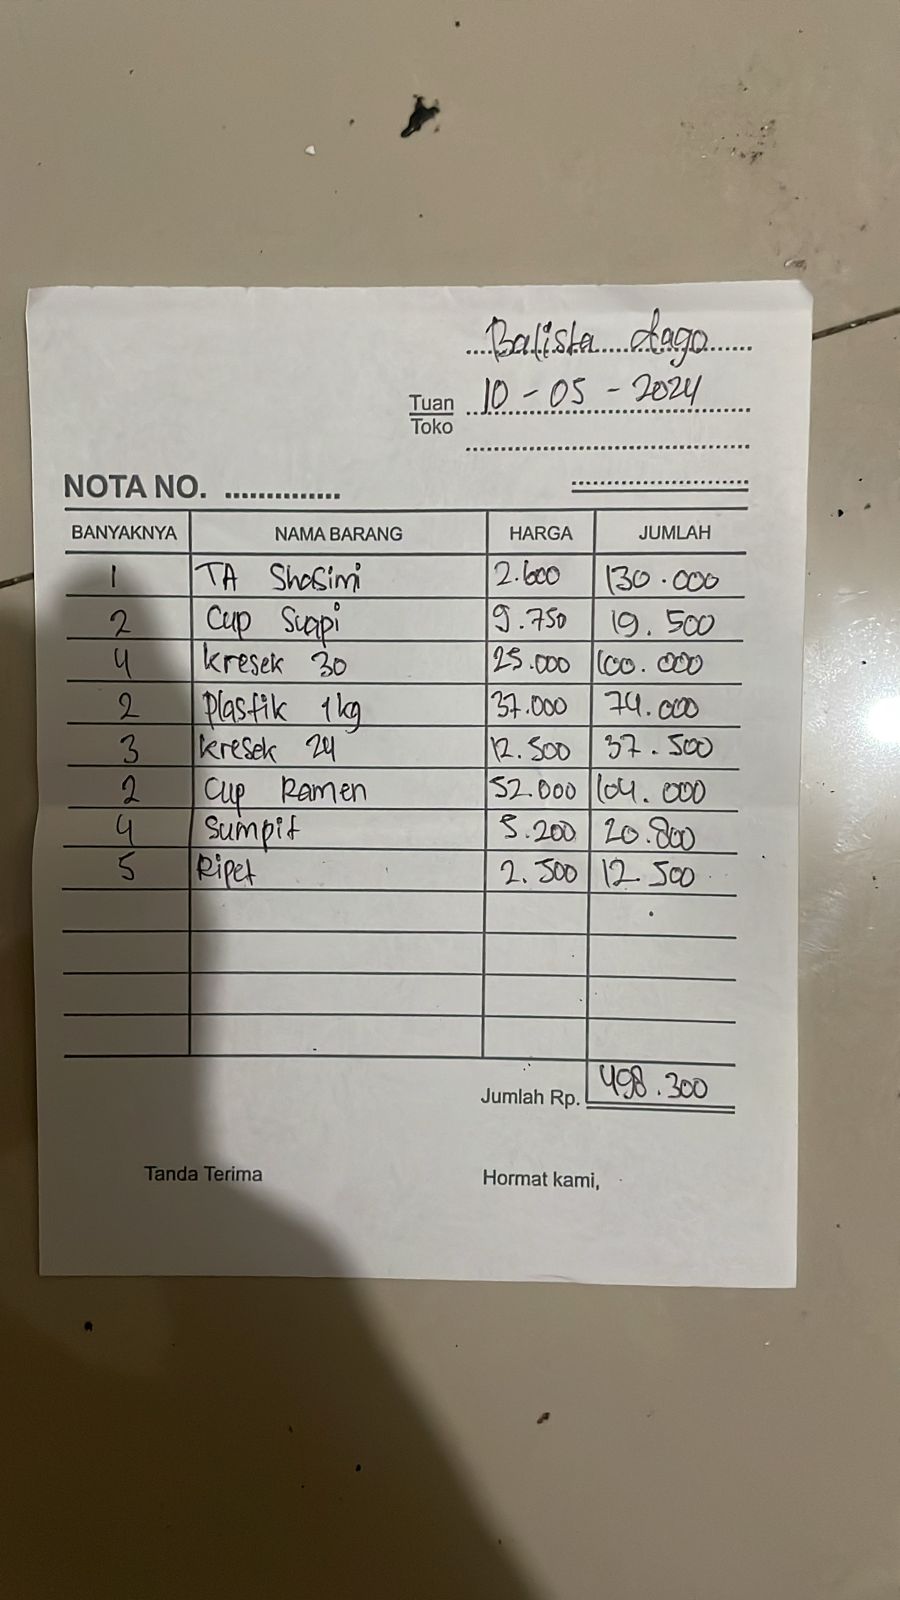 Balista dago
Tuan 10 - 05 - 2024
Toko
NOTA NO. ..............
BANYAKNYA NAMA BARANG HARGA JUMLAH
1 TA Shosimi 2.600 130.000
2 Cup Suapi 9.750 19.500
4 kresek 30 25.000 100.000
2 Plastik 1kg 37.000 74.000
3 kresek 24 12.500 37.500
2 Cup Ramen 52.000 104.000
4 Sumpit 5.200 20.800
5 Ripet 2.500 12.500
Jumlah Rp. 498.300
Tanda Terima Hormat kami,